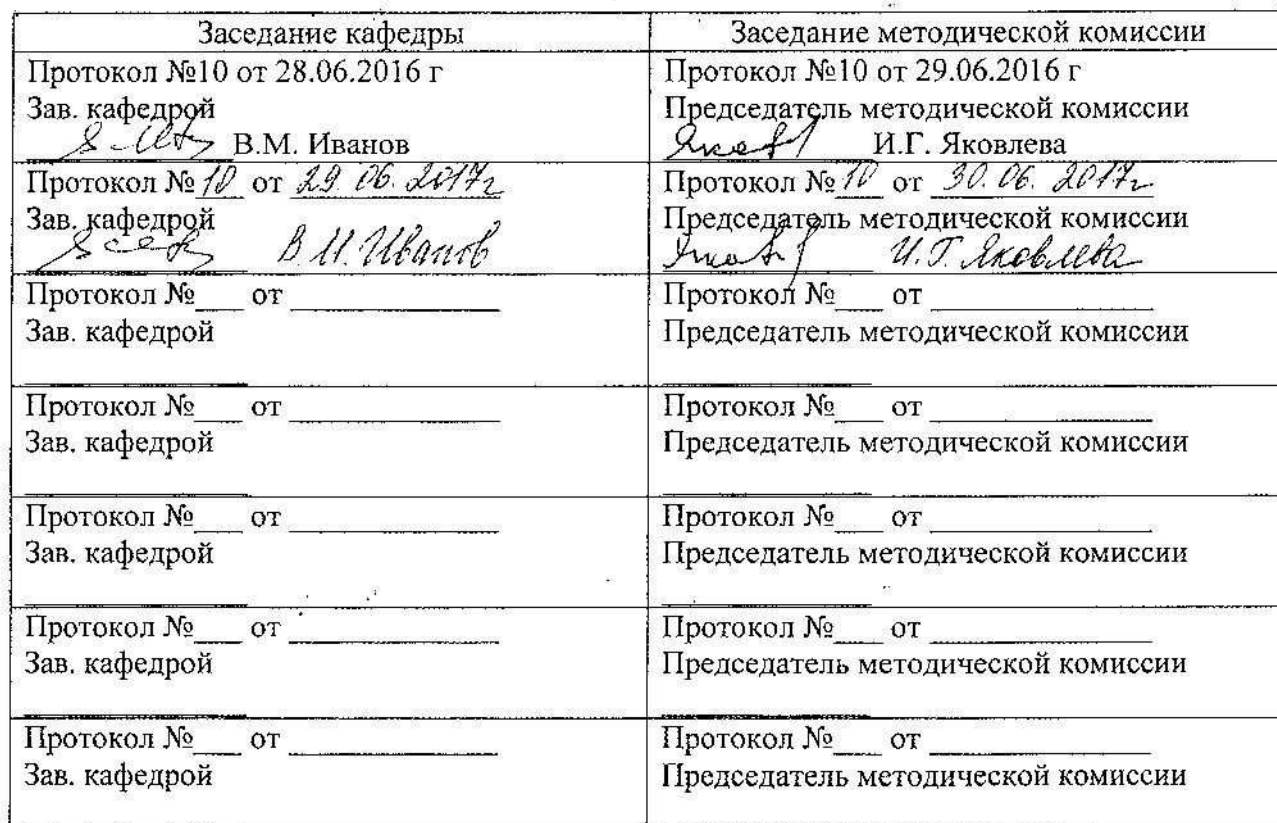 Заседание кафедры
Заседание методической комиссии
Протокол №10 от 28.06.2016 г
Зав. кафедрой
В.М. Иванов
Протокол №10 от 29.06.2016 г
Председатель методической комиссии
И.Г. Яковлева
Протокол № 10 от 29.06.2017г
Зав. кафедрой
В.М. Иванов
Протокол № 10 от 30.06.2017г
Председатель методической комиссии
И.Г. Яковлева
Протокол №___ от ______________
Зав. кафедрой
Протокол №___ от ______________
Председатель методической комиссии
Протокол №___ от ______________
Зав. кафедрой
Протокол №___ от ______________
Председатель методической комиссии
Протокол №___ от ______________
Зав. кафедрой
Протокол №___ от ______________
Председатель методической комиссии
Протокол №___ от ______________
Зав. кафедрой
Протокол №___ от ______________
Председатель методической комиссии
Протокол №___ от ______________
Зав. кафедрой
Протокол №___ от ______________
Председатель методической комиссии